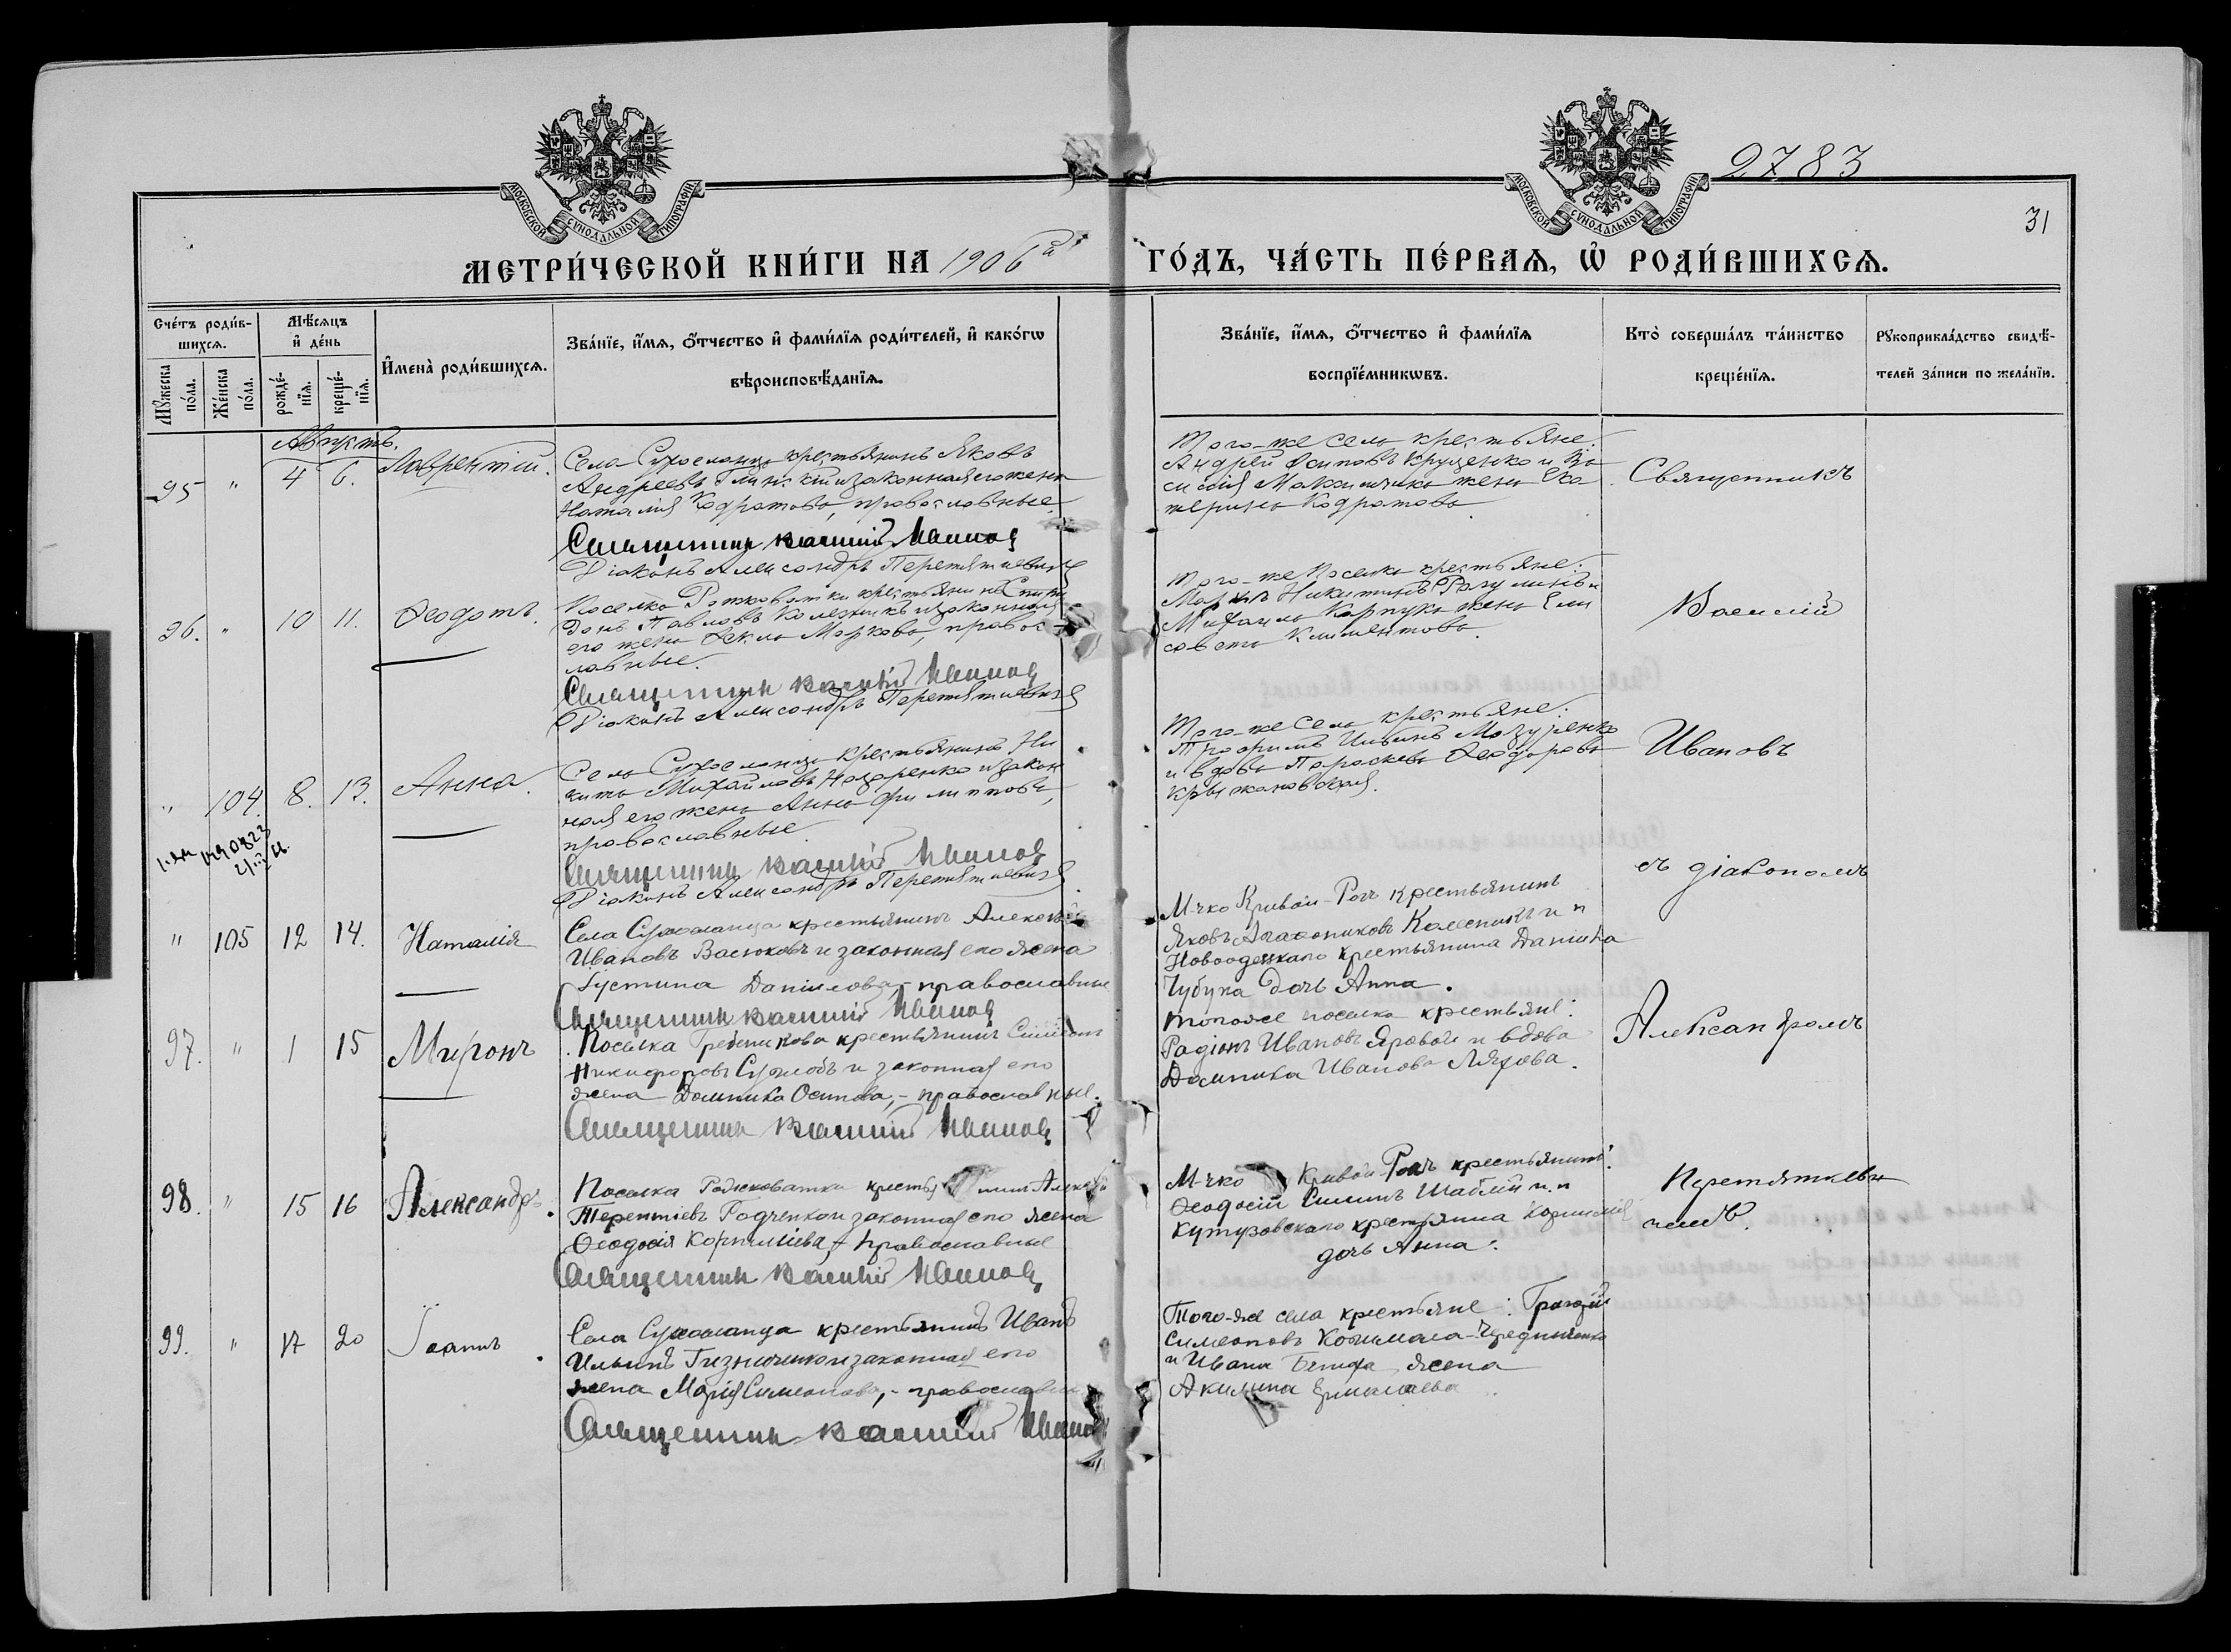 МОСКОВСКОЙ СѴНОДАЛЬНОЙ ТИПОГРАФІИ
МОСКОВСКОЙ СѴНОДАЛЬНОЙ ТИПОГРАФІИ
2783
31
МЕТРИ́ЧЕСКОЙ КНИ́ГИ НА 1906й ГО́ДЪ, ЧА́СТЬ ПЕ́РВАѦ, Ѡ҆ РОДИ́ВШИХСѦ.
Сче́тъ роди́в-
шихсѧ.
Мꙋ́жеска по́ла.
Же́нска по́ла.
Мѣ́сѧцъ
и҆ де́нь
рожде́-
нїѧ.
креще́-
нїѧ.
И҆мена̀ роди́вшихсѧ.
Зва́нїе, и҆́мѧ, ѻ҆́тчество и҆ фами́лїѧ роди́телей, и҆ како́гѡ
вѣроисповѣ́данїѧ.
Зва́нїе, и҆́мѧ, ѻ҆́тчество и҆ фами́лїѧ
воспрїе́мникѡвъ.
Кто̀ соверша́лъ та́инство
креще́нїѧ.
Рꙋкоприкла́дство свидѣ́-
телей за́писи по жела́нїи.
Августъ.
95 " 4 6. Лаврентій.
Села Сухоланца крестьянинъ Яковъ
Андреевъ и законная его жена
Наталія Кодратова, православные
Священникъ Василий Иванов
Діаконъ Александръ Перетяткевичъ
Того-же села крестьяне:
Андрей Осиповъ Круценко и
жена Ека
терина Кодратова
Священникъ
96. " 10 11. Ѳеодотъ.
Поселка Рожковатки крестьянинъ Спири
донъ Павловъ Колесникъ и законная
его жена Ѳекла Маркова, правос-
лавные.
Священник Василий Иванов
Діаконъ Александръ Перетяткевичъ
Того-же поселка крестьяне:
Маркъ Никитинъ и
Михаила Карпука жена Ели
савета Климентова.
Василій
" 104. 8. 13. Анна.
Села Сухоланца крестьянинъ Ни
кита Михайловъ Назаренко и закон
ная его жена Анна Филиппова,
православные
Священник Василий Иванов
Діаконъ Александръ Перетяткевичъ
Того-же села крестьяне:
Трофимъ Ильинъ Мазуренко
и вдова Параскева Ѳеодорова
Крыжановская.
Ивановъ
съ діакономъ
" 105 12 14. Наталія
Села Сухоланца крестьянинъ Алексѣй
Ивановъ Васюковъ и законная его жена
Іустина Даніилова, - православные
Священник Василий Иванов
М-чка Кривой-Рогъ крестьянинъ
Яковъ Агаѳониковъ Колесникъ и п
Новоодесскаго крестьянина Даніила
Чубука дочь Анна.
97. " 1 15 Миронъ
Поселка крестьянинъ Симеонъ
Никифоровъ и законная его
жена Домника Осипова, - православные.
Священник Василий Иванов
Тогоже поселка крестьяне:
Радіонъ Ивановъ Яровой и вдова
Домника Иванова Ляхова.
Александромъ
98. " 15 16 Александръ.
Поселка Рожковатки крестьянинъ Алексѣй
Терентіевъ Родченко и законная его жена
Ѳеодосія Корниліева, - православные
Священник Василий Иванов
М-чка Кривой Рогъ крестьянинъ:
Ѳеодосій Симинъ Шаблій и п
Кутузовскаго крестьянина Корнилія
дочь Анна.
Перетяткеви
чемъ.
99. " 17 20 Іоаннъ
Села Сухоланца крестьянинъ Иванъ
Ильинъ и законная его
жена Марія Симеонова, - православные
Священник Василий Иванов
Того-же села крестьяне:
Симеоновъ
и Ивана жена
Акилина Ермолаева